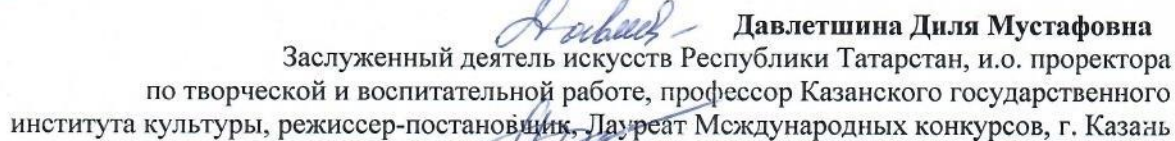 Давлетшина Диля Мустафовна
Заслуженный деятель искусств Республики Татарстан, и.о. проректора
по творческой и воспитательной работе, профессор Казанского государственного
института культуры, режиссер-постановщик, Лауреат Международных конкурсов, г. Казань